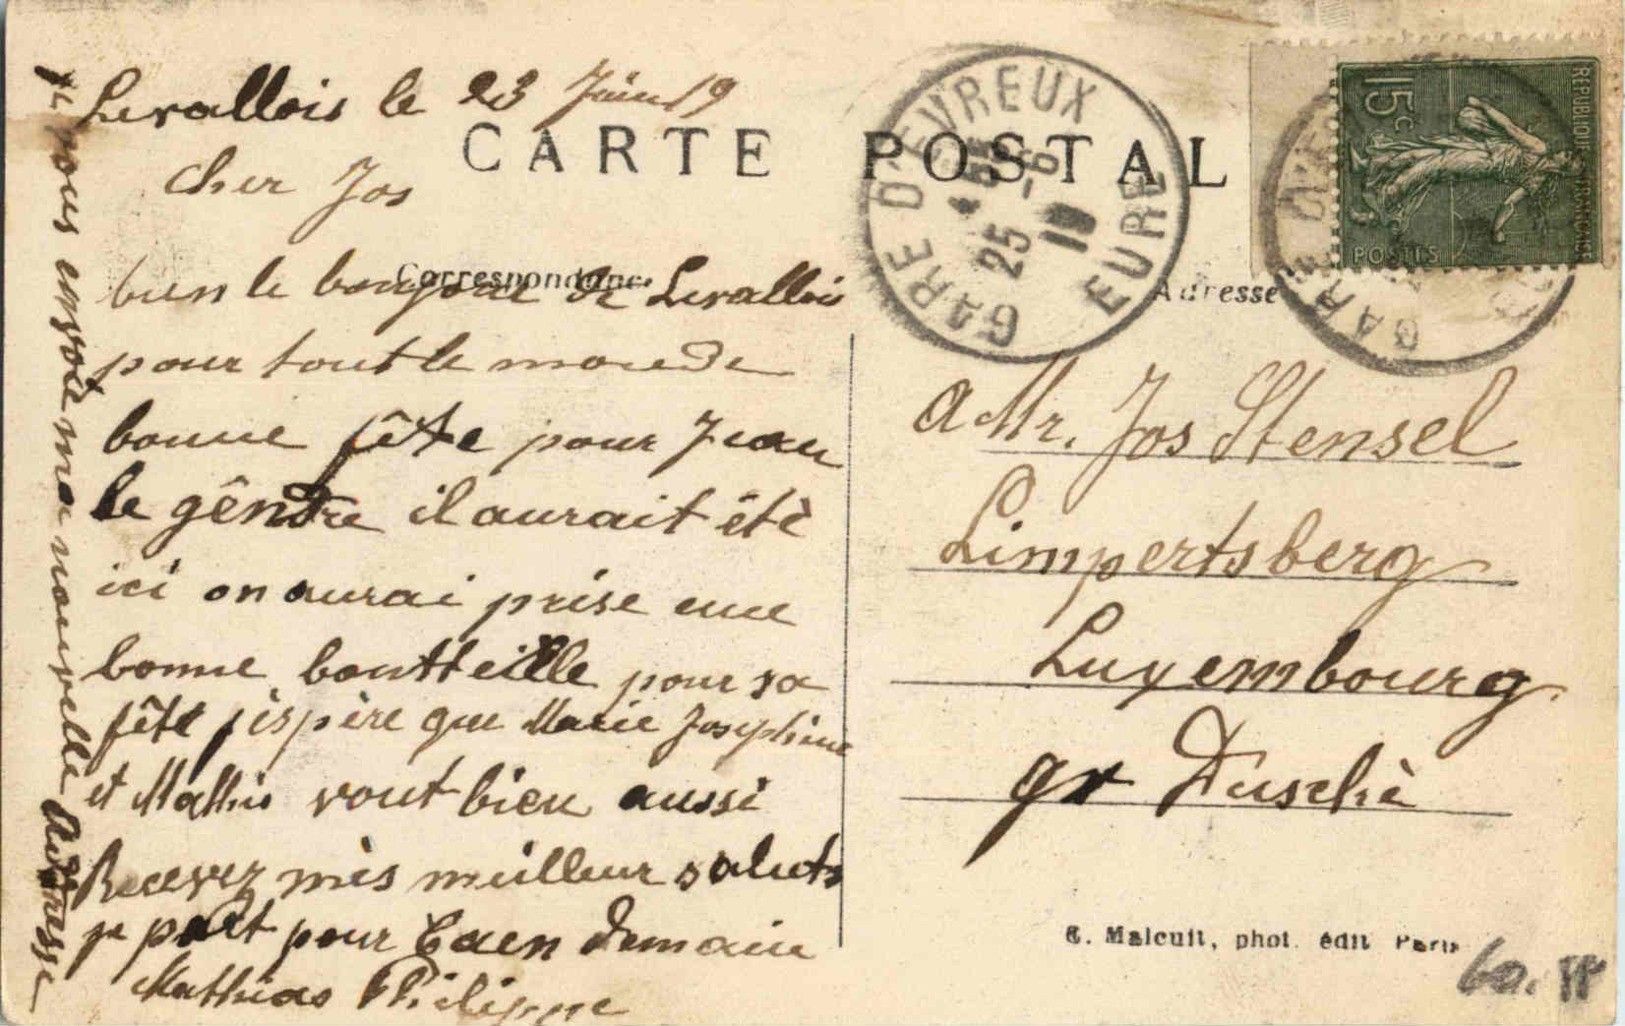 Levallois le 23 Juin 19
CARTE POSTALE
Cher Jos
Correspondance
bien le bonjour de Levallois
pour tout le monde
bonne fête pour Jean
le gêndre il aurait étè
ici on aurai prise une
bonne boutteille pour sa
fête j'espère que Marie Josephine
et Mathis vont bien aussi
Recevez mès meilleur saluts
je part pour Caen demain
Mathias Philippe
je vous envoie ma nouvelle Adresse
GARE D'EVREUX
25 -6
19
EURE
GARE D'E
REPUBLIQUE FRANCAISE
15c
POSTES
Adresse
a Mr. Jos Stensel
Limpertsberg
Luxembourg
gr Duschè
C. Malcuit, phot. édit. Paris
60.